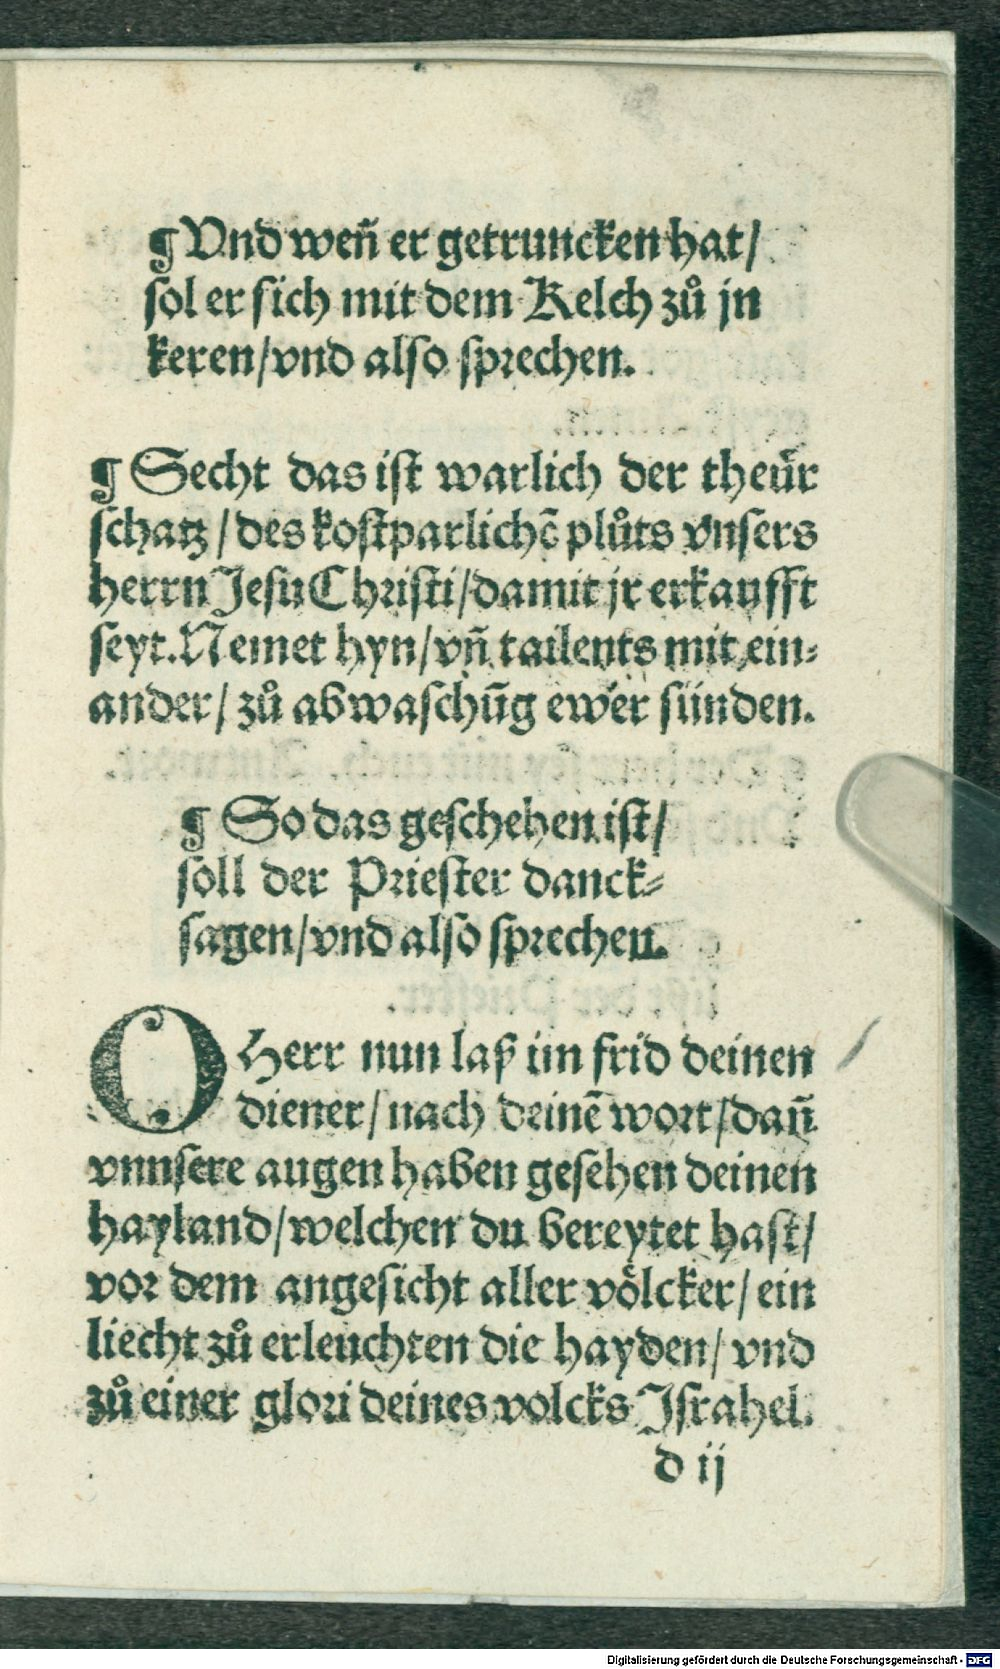 ¶ Vnd weñ er getruncken hat/
sol er sich mit dem Kelch zů jn
keren/vnd also sprechen.
¶ Secht das ist warlich der theür
schatz/des kostparlichē plůts vnsers
herrn Jesu Christi/damit jr erkaufft
seyt. Nemet hyn/vñ tailents mit ein⸗
ander/zů abwaschūg ewer sünden.
¶ So das geschehen ist/
soll der Priester danck⸗
sagen/vnd also sprechen.
O Herr nun laß im frid deinen
diener/nach deinē wort/dañ
vnnsere augen haben gesehen deinen
hayland/welchen du bereytet hast/
vor dem angesicht aller völcker/ein
liecht zů erleuchten die hayden/vnd
zů einer glori deines volcks Israhel.
d ij
Digitalisierung gefördert durch die Deutsche Forschungsgemeinschaft - DFG